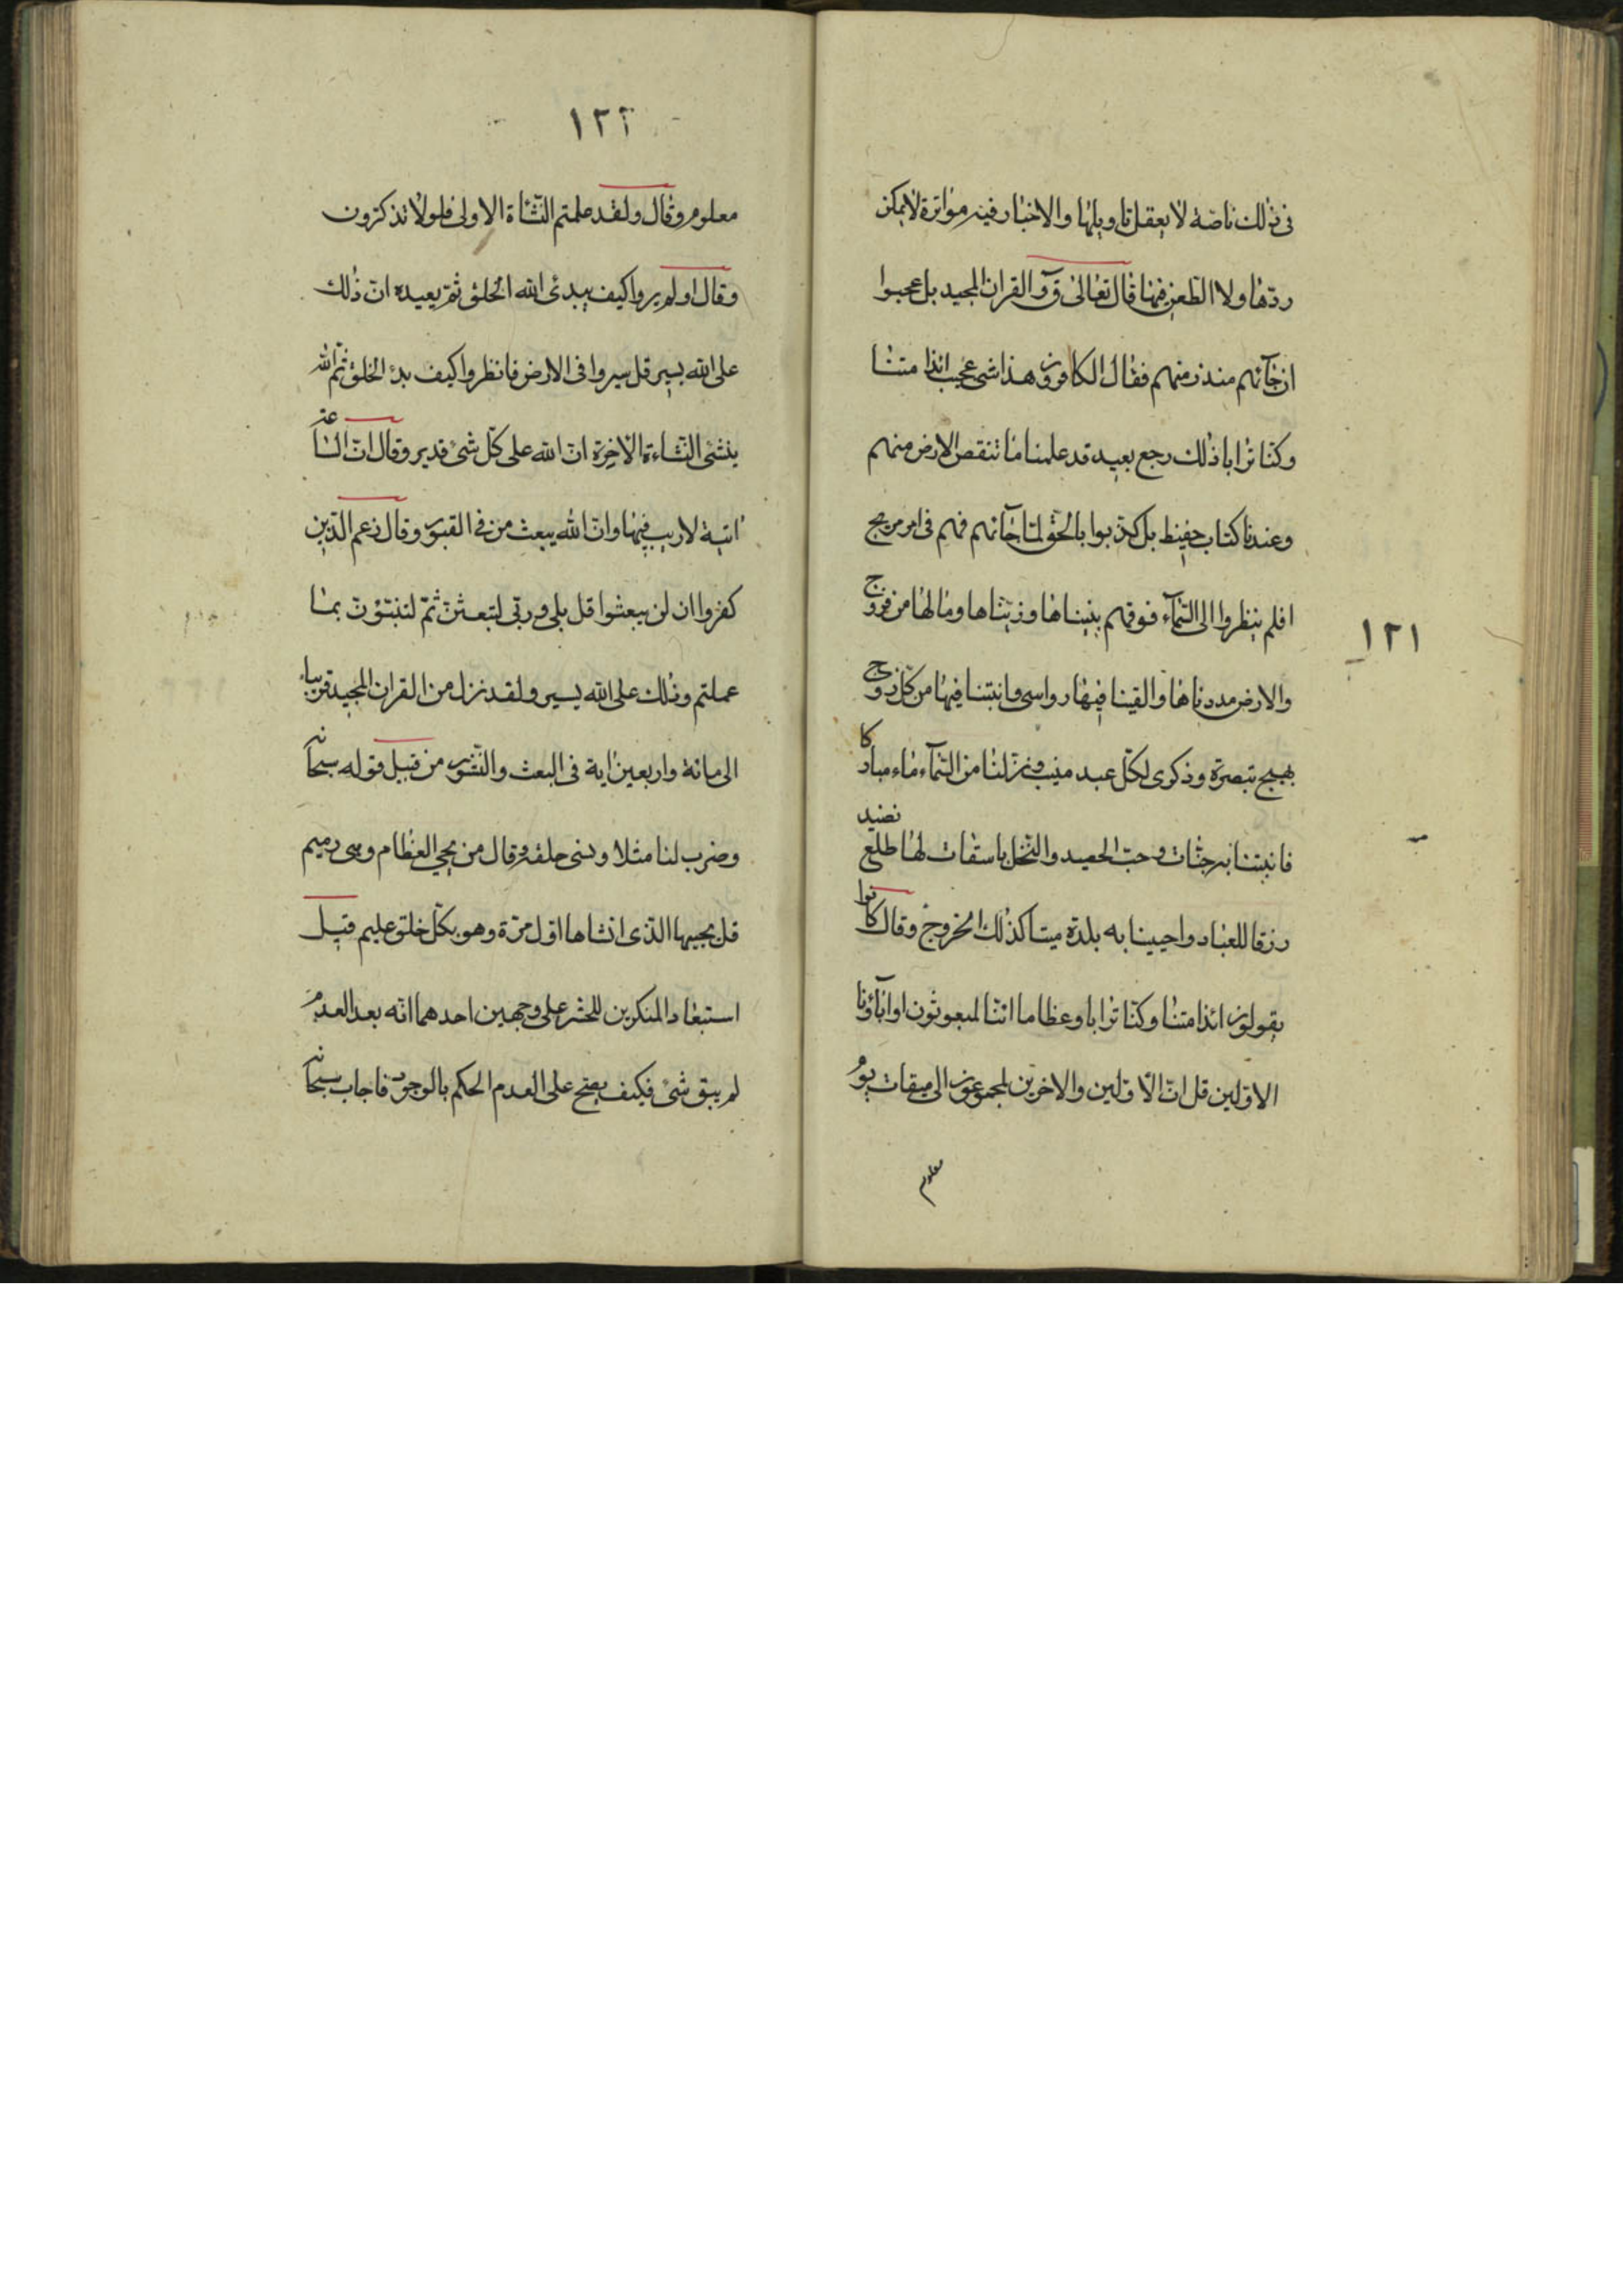 في ذلك ناصة لا يعقل تاويلها والاخبار فيه متواترة لا يمكن
ردها ولا الطعن فيها قال تعالى ق والقران المجيد بل عجبوا
ان جآئهم منذر منهم فقال الكافرون هذا شئ عجيب ائذا متنا
وكنا ترابا ذلك رجع بعيد قد علمنا ما تنقص الارض منهم
وعندنا كتاب حفيظ بل كذبوا بالحق لما جآئهم فهم في امر مريج
افلم ينظروا الى السمآء فوقهم بنيناها وزيناها وما لها من فروج
والارض مددناها والقينا فيها رواسي وانبتنا فيها من كل زوج
بهيج تبصرة وذكرى لكل عبد منيب ونزلنا من السمآء ماء مباركا
فانبتنا به جنات وحب الحصيد والنخل باسقات لها طلع نضيد
رزقا للعباد واحيينا به بلدة ميتا كذلك الخروج وقال كانوا
يقولون ائذا متنا وكنا ترابا وعظاما ائنا لمبعوثون اوابآؤنا
الاولين قل ان الاولين والاخرين لمجموعون الى ميقات يوم
معلوم
١٢١
١٢٢
معلوم وقال ولقد علمتم النشاة الاولى فلولا تذكرون
وقال اولم يروا كيف يبدئ الله الخلق ثم يعيده ان ذلك
على الله يسير قل سيروا في الارض فانظروا كيف بدء الخلق ثم الله
ينشئ النشاءة الاخرة ان الله على كل شئ قدير وقال ان الساعة
اتية لا ريب فيها وان الله يبعث من في القبور وقال زعم الذين
كفروا ان لن يبعثوا قل بلى وربي لتبعثن ثم لتنبئون بما
عملتم وذلك على الله يسير ولقد نزل من القران المجيد قريباء
الى مائة واربعين اية في البعث والنشور من قبيل قوله سبحانه
وضرب لنا مثلا ونسى خلقه قال من يحيي العظام وهي رميم
قل يحييها الذي انشاها اول مرة وهو بكل خلق عليم قيل
استبعاد المنكرين للحشر على وجهين احدهما انه بعد العدم
لم يبق شئ فكيف يصح على العدم الحكم بالوجود فاجاب سبحانه